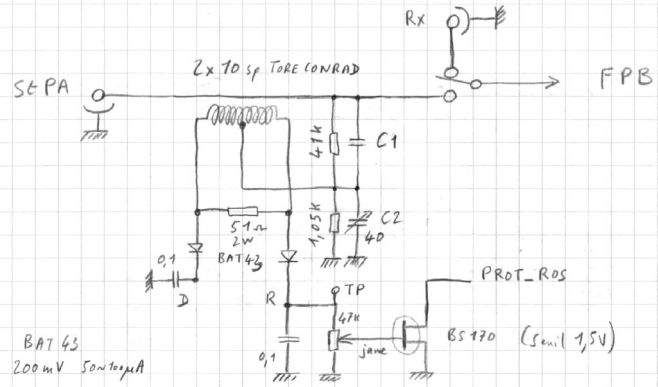 Rx
2x10 sp TORE CONRAD
St PA
FPB
41K
C1
51Ω
2W
1,05K
C2
40
BAT 43
0,1
D
R
TP
PROT_ROS
47K
jaune
BS170 (Seuil 1,5V)
0,1
BAT 43
200mV 50~100µA